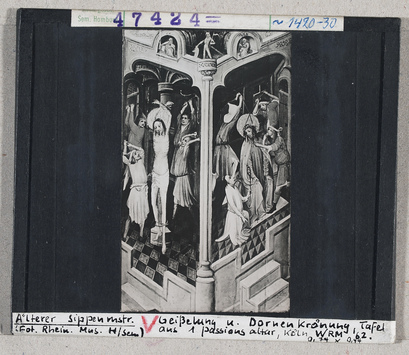 Sem. Hamburg 47424= ~1420-30
Älterer Sippenmstr. V Geißelung u. Dornenkrönung, Tafel
(Fot. Rhein. Mus. H/Sem) aus 1 Passionsaltar, Köln, WRM, 62.